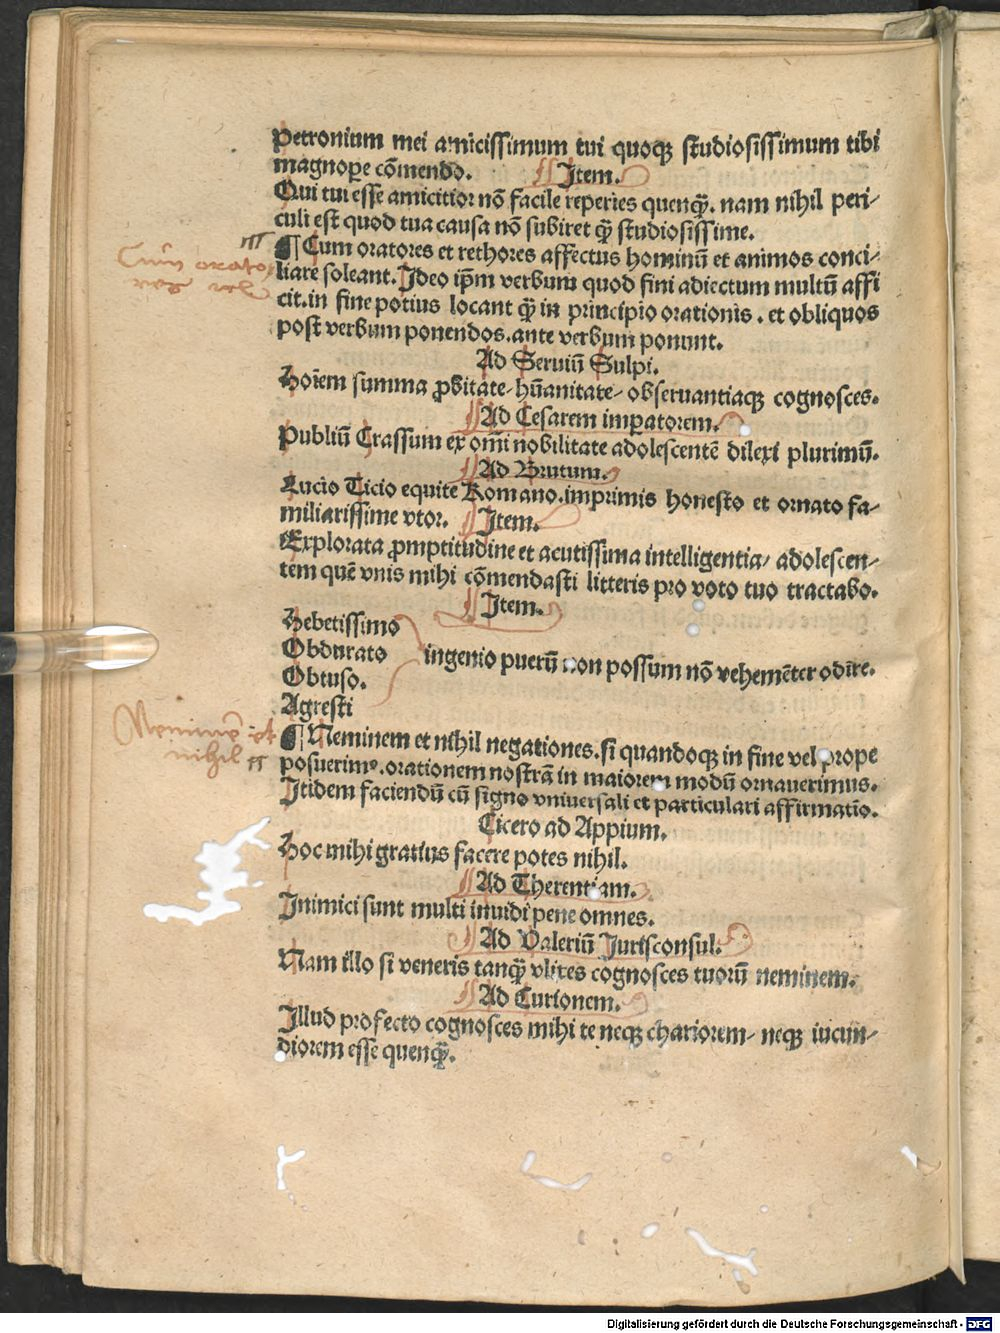 Petronium mei amicissimum tui quoqꝫ studiosissimum tibi
magnope cōmendo. ¶ Item.
Qui tui esse amicitior nō facile reperies quenq̄. nam nihil peri-
culi est quod tua causa nō subiret q̄ studiosissime.
¶ Cum oratores et rethores affectus hominū et animos conci-
liare soleant. Ideo ip̄m verbum quod fini adiectum multū affi
cit. in fine potius locant q̄ in principio orationis. et obliquos
post verbum ponendos. ante verbum ponunt.
Ad Seruiū Sulpi.
Hoīem summa ꝓbitate/ hūanitate/ obseruantiaqꝫ cognosces.
¶ Ad Cesarem imperatorem.
Publiū Crassum ex omī nobilitate adolescentē dilexi plurimū.
¶ Ad Brutum.
Lucio Ticio equite Romano. imprimis honesto et ornato fa-
miliarissime vtor. ¶ Item.
Explorata ꝓmptitudine et acutissima intelligentia/ adolescen-
tem quē vnis mihi cōmendasti litteris pro voto tuo tractabo.
¶ Item.
Hebetissimo
Obdurato ingenio puerū non possum nō vehemēter odire.
Obtuso.
Agresti
¶ Neminem et nihil negationes. si quandoqꝫ in fine vel prope
posuerimꝰ. orationem nostrā in maiorem modū ornauerimus.
Itidem faciendū cū signo vniuersali et particulari affirmatiō.
Cicero ad Appium.
Hoc mihi gratius facere potes nihil.
¶ Ad Therentiam.
Inimici sunt multi inuidi pene omnes.
¶ Ad Valeriū Jurisconsul.
Nam illo si veneris tanq̄ vlixes cognosces tuorū neminem.
¶ Ad Curionem.
Illud profecto cognosces mihi te neqꝫ chariorem/ neqꝫ iucun-
diorem esse quenq̄.
Cum orato
res vel
Neminē et
nihil
Digitalisierung gefördert durch die Deutsche Forschungsgemeinschaft - DFG